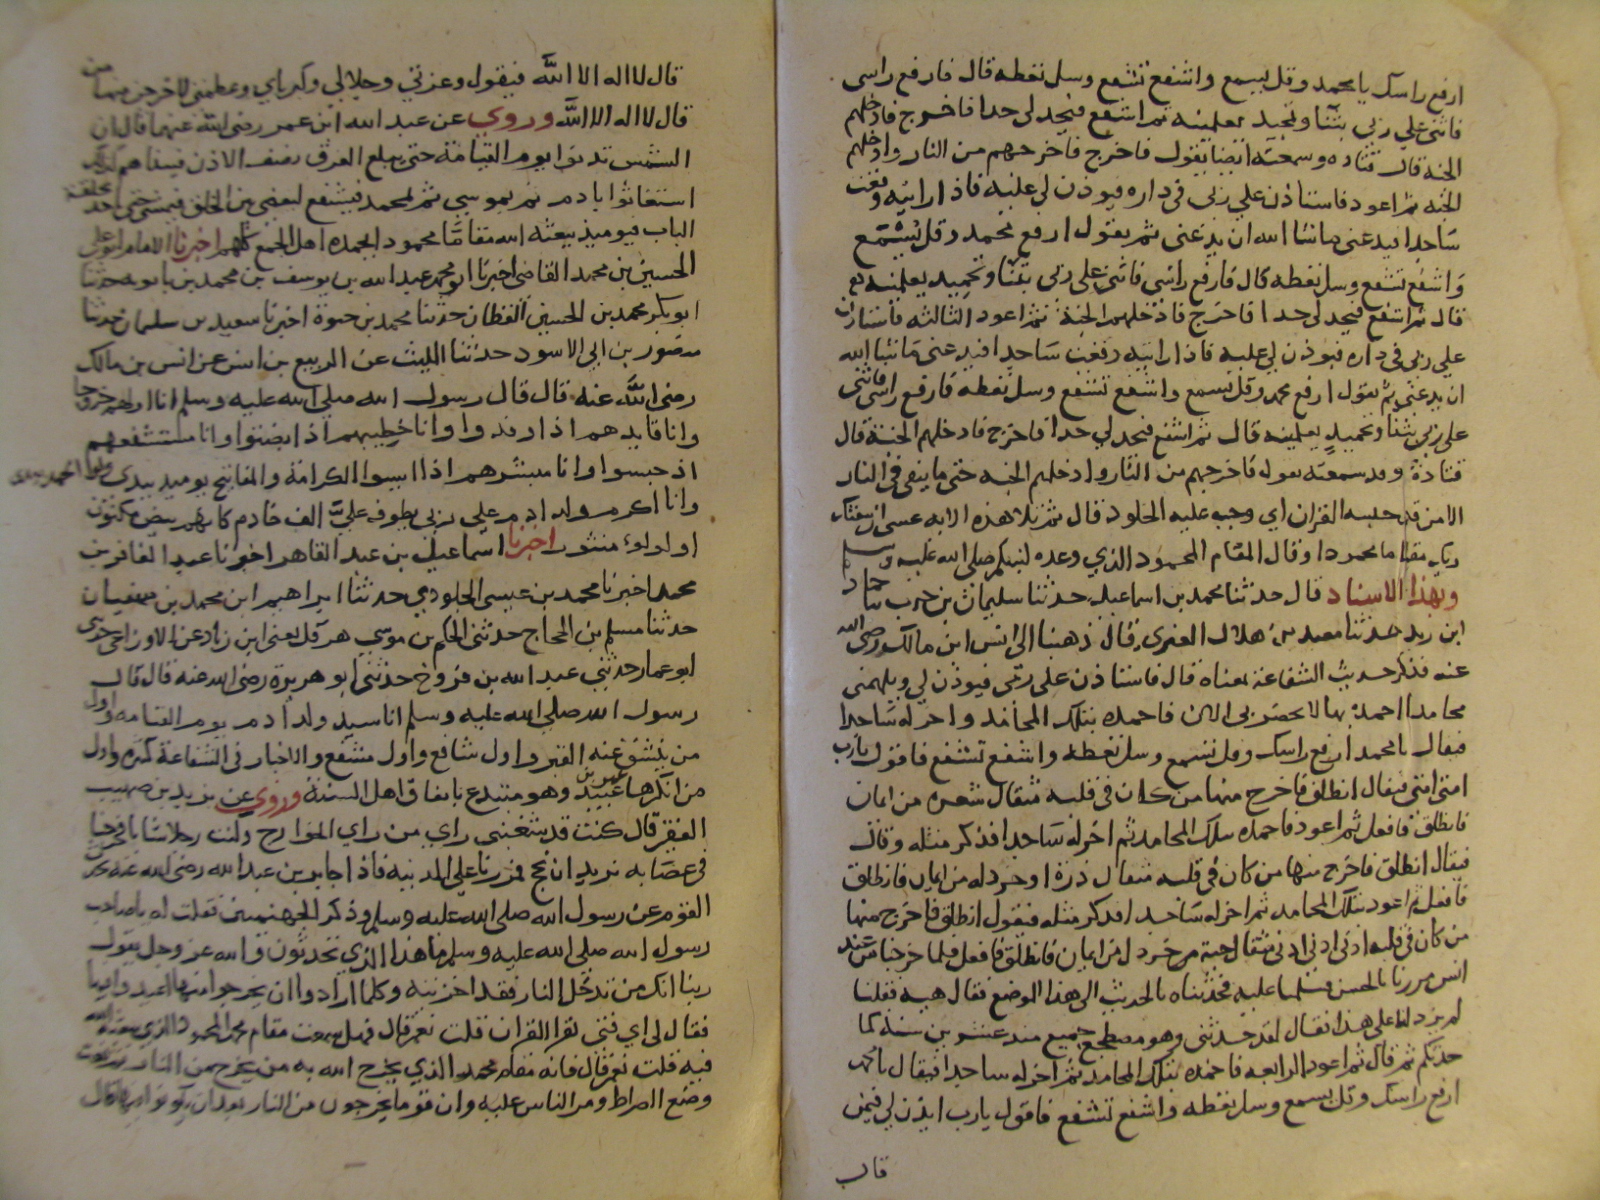 ارفع راسك يا محمد وقل يسمع واشفع تشفع وسل تعطه قال فارفع راسى
فاثنى علي ربي بثنا وتحميد يعلمنيه ثم اشفع فيحد لي حدا فاخرج فادخلهم
الجنة قال قتاده وسمعته ايضا يقول فاخرج فاخرجهم من النار وادخلهم
الجنه ثم اعود فاستاذن علي ربي في داره فيوذن لي عليه فاذا رايته وقعت
ساجدا فيدعنى ما شا الله ان يدعنى ثم يقول ارفع محمد وقل يسمع
واشفع تشفع وسل تعطه قال فارفع راسى فاثنى علي ربي بثنا وتحميد يعلمنيه
قال ثم اشفع فيحد لي حدا فاخرج فادخلهم الجنة ثم اعود الثالثه فاستاذن
علي ربي في داره فيوذن لي عليه فاذا رايته وقعت ساجدا فيدعنى ما شا الله
ان يدعنى ثم يقول ارفع محمد وقل يسمع واشفع تشفع وسل تعطه فارفع راسى فاثنى
على ربي بثنا وتحميد يعلمنيه قال ثم اشفع فيحد لي حدا فاخرج فادخلهم الجنة قال
قتادة وقد سمعته يقول فاخرجهم من النار وادخلهم الجنه حتى ما يبقى في النار
الا من قد حبسه القران اي وجب عليه الخلود قال ثم تلا هذه الايه عسى ان يبعثك
ربك مقاما محمودا وقال المقام المحمود الذي وعده نبيكم صلى الله عليه وسلم
وبهذا الاسناد قال حدثنا محمد بن اسماعيل حدثنا سليمان بن حرب ثنا حماد
ابن زيد حدثنا معبد بن هلال العنزى قال ذهبنا الى انس ابن مالك رضي الله
عنه فذكر حديث الشفاعة بمعناه قال فاستاذن على ربي فيوذن لي ويلهمنى
محامدا احمده بها لا تحضرنى الان فاحمده بتلك المحامد واخر له ساجدا
فيقال يا محمد ارفع راسك وقل تسمع وسل تعطه واشفع تشفع فاقول يارب
امتى امتى فيقال انطلق فاخرج منها من كان في قلبه مثقال شعيره من ايمان
فانطلق فافعل ثم اعود فاحمده بتلك المحامد ثم اخر له ساجدا فذكر مثله وقال
فيقال انطلق فاخرج منها من كان في قلبه مثقال ذرة او خردله من ايمان فانطلق
فافعل ثم اعود بتلك المحامد ثم اخر له ساجدا فذكر مثله فيقول انطلق فاخرج منها
من كان في قلبه ادنى ادنى ادنى مثقال حبة من خردل من ايمان فانطلق فافعل فلما خرجنا من عند
انس مررنا بالحسن فسلمنا عليه فحدثناه بالحديث الى هذا الموضع فقال هيه فقلنا
لم يزد لنا على هذا فقال لقد حدثنى وهو جميع منذ عشرين سنة كما
حدثكم ثم قال ثم اعود الرابعه فاحمده بتلك المحامد ثم اخر له ساجدا فيقال يا محمد
ارفع راسك وقل يسمع وسل تعطه واشفع تشفع فاقول يارب ايذن لي فيمن
قال
قال لا اله الا الله فيقول وعزتي وجلالي وكبرياي وعظمتي لاخرجن منها من
قال لا اله الا الله وروي عن عبد الله ابن عمر رضى الله عنهما قال ان
الشمس تدنوا يوم القيامة حتى يبلغ العرق نصف الاذن فبيناهم كذلك
استغاثوا بادم ثم بموسي ثم بمحمد فيشفع ليقضى بين الخلق فيمشى حتى ياخذ بحلقة
الباب فيوميذ يبعثه الله مقاما محمودا يحمده اهل الجمع كلهم اخبرنا الامام ابو علي
الحسين بن محمد القاضى اخبرنا ابو محمد عبد الله بن يوسف بن محمد بن بامويه حدثنا
ابو بكر محمد بن الحسين القطان حدثنا محمد بن حيوة اخبرنا سعيد بن سليمان حدثنا
منصور بن ابي الاسود حدثنا الليث عن الربيع بن انس عن انس بن مالك
رضى الله عنه قال قال رسول الله صلى الله عليه وسلم انا اولهم خروجا
وانا قايدهم اذا وفدوا وانا خطيبهم اذا انصتوا وانا مستشفعهم
اذ حبسوا وانا مبشرهم اذا ايسوا الكرامة والمفاتيح يوميذ بيدى ولوا الحمد بيدى
وانا اكرم ولد ادم علي ربي يطوف علي الف خادم كانهم بيض مكنون
او لولو منثور اخبرنا اسماعيل بن عبد القاهر اخبرنا عبد الغافر بن
محمد اخبرنا محمد بن عيسى الجلودي حدثنا ابراهيم ابن محمد بن سفيان
حدثنا مسلم بن الحجاج حدثنى الحكم بن موسي هقل يعنى ابن زياد عن الاوزاعي حدثنى
ابو عمار حدثني عبد الله بن فروخ حدثنى ابو هريرة رضى الله عنه قال قال
رسول الله صلى الله عليه وسلم انا سيد ولد ادم يوم القيامه واول
من ينشق عنه القبر واول شافع واول مشفع والاخبار في الشفاعة كثيره واول
من انكرها عمرو بن عبيد وهو مبتدع باتفاق اهل السنة وروي عن يزيد بن صهيب
الفقير قال كنت قد شغفنى راي من راي الخوارج وكنت رجلا شابا فخرجنا
في عصابه نريد ان نحج فمررنا على المدينه فاذا جابر بن عبد الله رضى الله عنه يحدث
القوم عن رسول الله صلى الله عليه وسلم وذكر الجهنميين فقلت له يا صاحب
رسول الله صلى الله عليه وسلم ما هذا الذي تحدثون والله عز وجل يقول
ربنا انك من تدخل النار فقد اخزيته وكلما ارادوا ان يخرجوا منها اعيدوا فيها
فقال لي اي فتى تقرا القران قلت نعم قال فهل سمعت مقام محمد المحمود الذي يبعثه الله
فيه قلت نعم قال فانه مقام محمد الذي يخرج الله به من يخرج من النار ثم نعت
وضع الصراط ومر الناس عليه وان قوما يخرجون من النار بعد ان يكونوا فيها قال